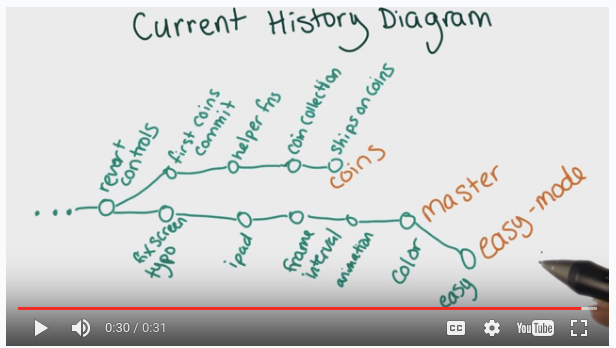 Current History Diagram
revert
controls
first coins
commit
helper fns
coin collection
ships on coins
coins
fix screen
typo
ipad
frame
interval
animation
color
master
easy
easy-mode
0:30 / 0:31
CC
YouTube